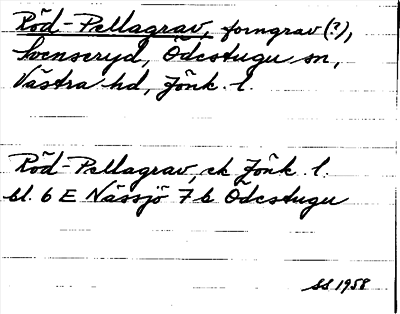 Röd-Pellagrav, forngrav (?),
Svenseryd, Ödestugu sn,
Västra hd, Jönk. l.
Röd-Pellagrav, ek Jönk. l.
bl. 6 E Nässjö 7 b Ödestugu
SS 1958